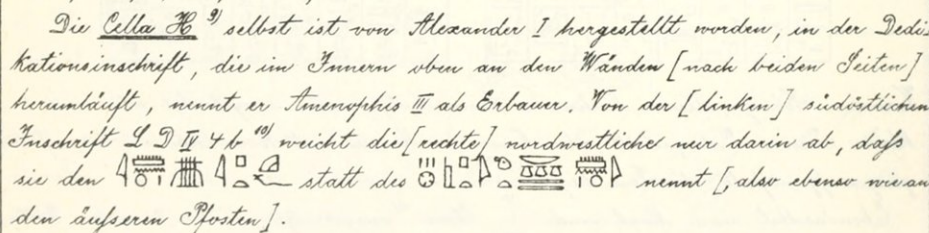 Die Cella H 9) selbst ist von Alexander I hergestellt worden, in der Dedi-
kationsinschrift, die im Innern oben an den Wänden [nach beiden Seiten]
herumläuft, nennt er Amenophis III als Erbauer. Von der [linken] südöstlichen
Inschrift L D IV 4 b 10) weicht die [rechte] nordwestliche nur darin ab, daſs
sie den statt des nennt [, also ebenso wie an
den äuſseren Pfosten].